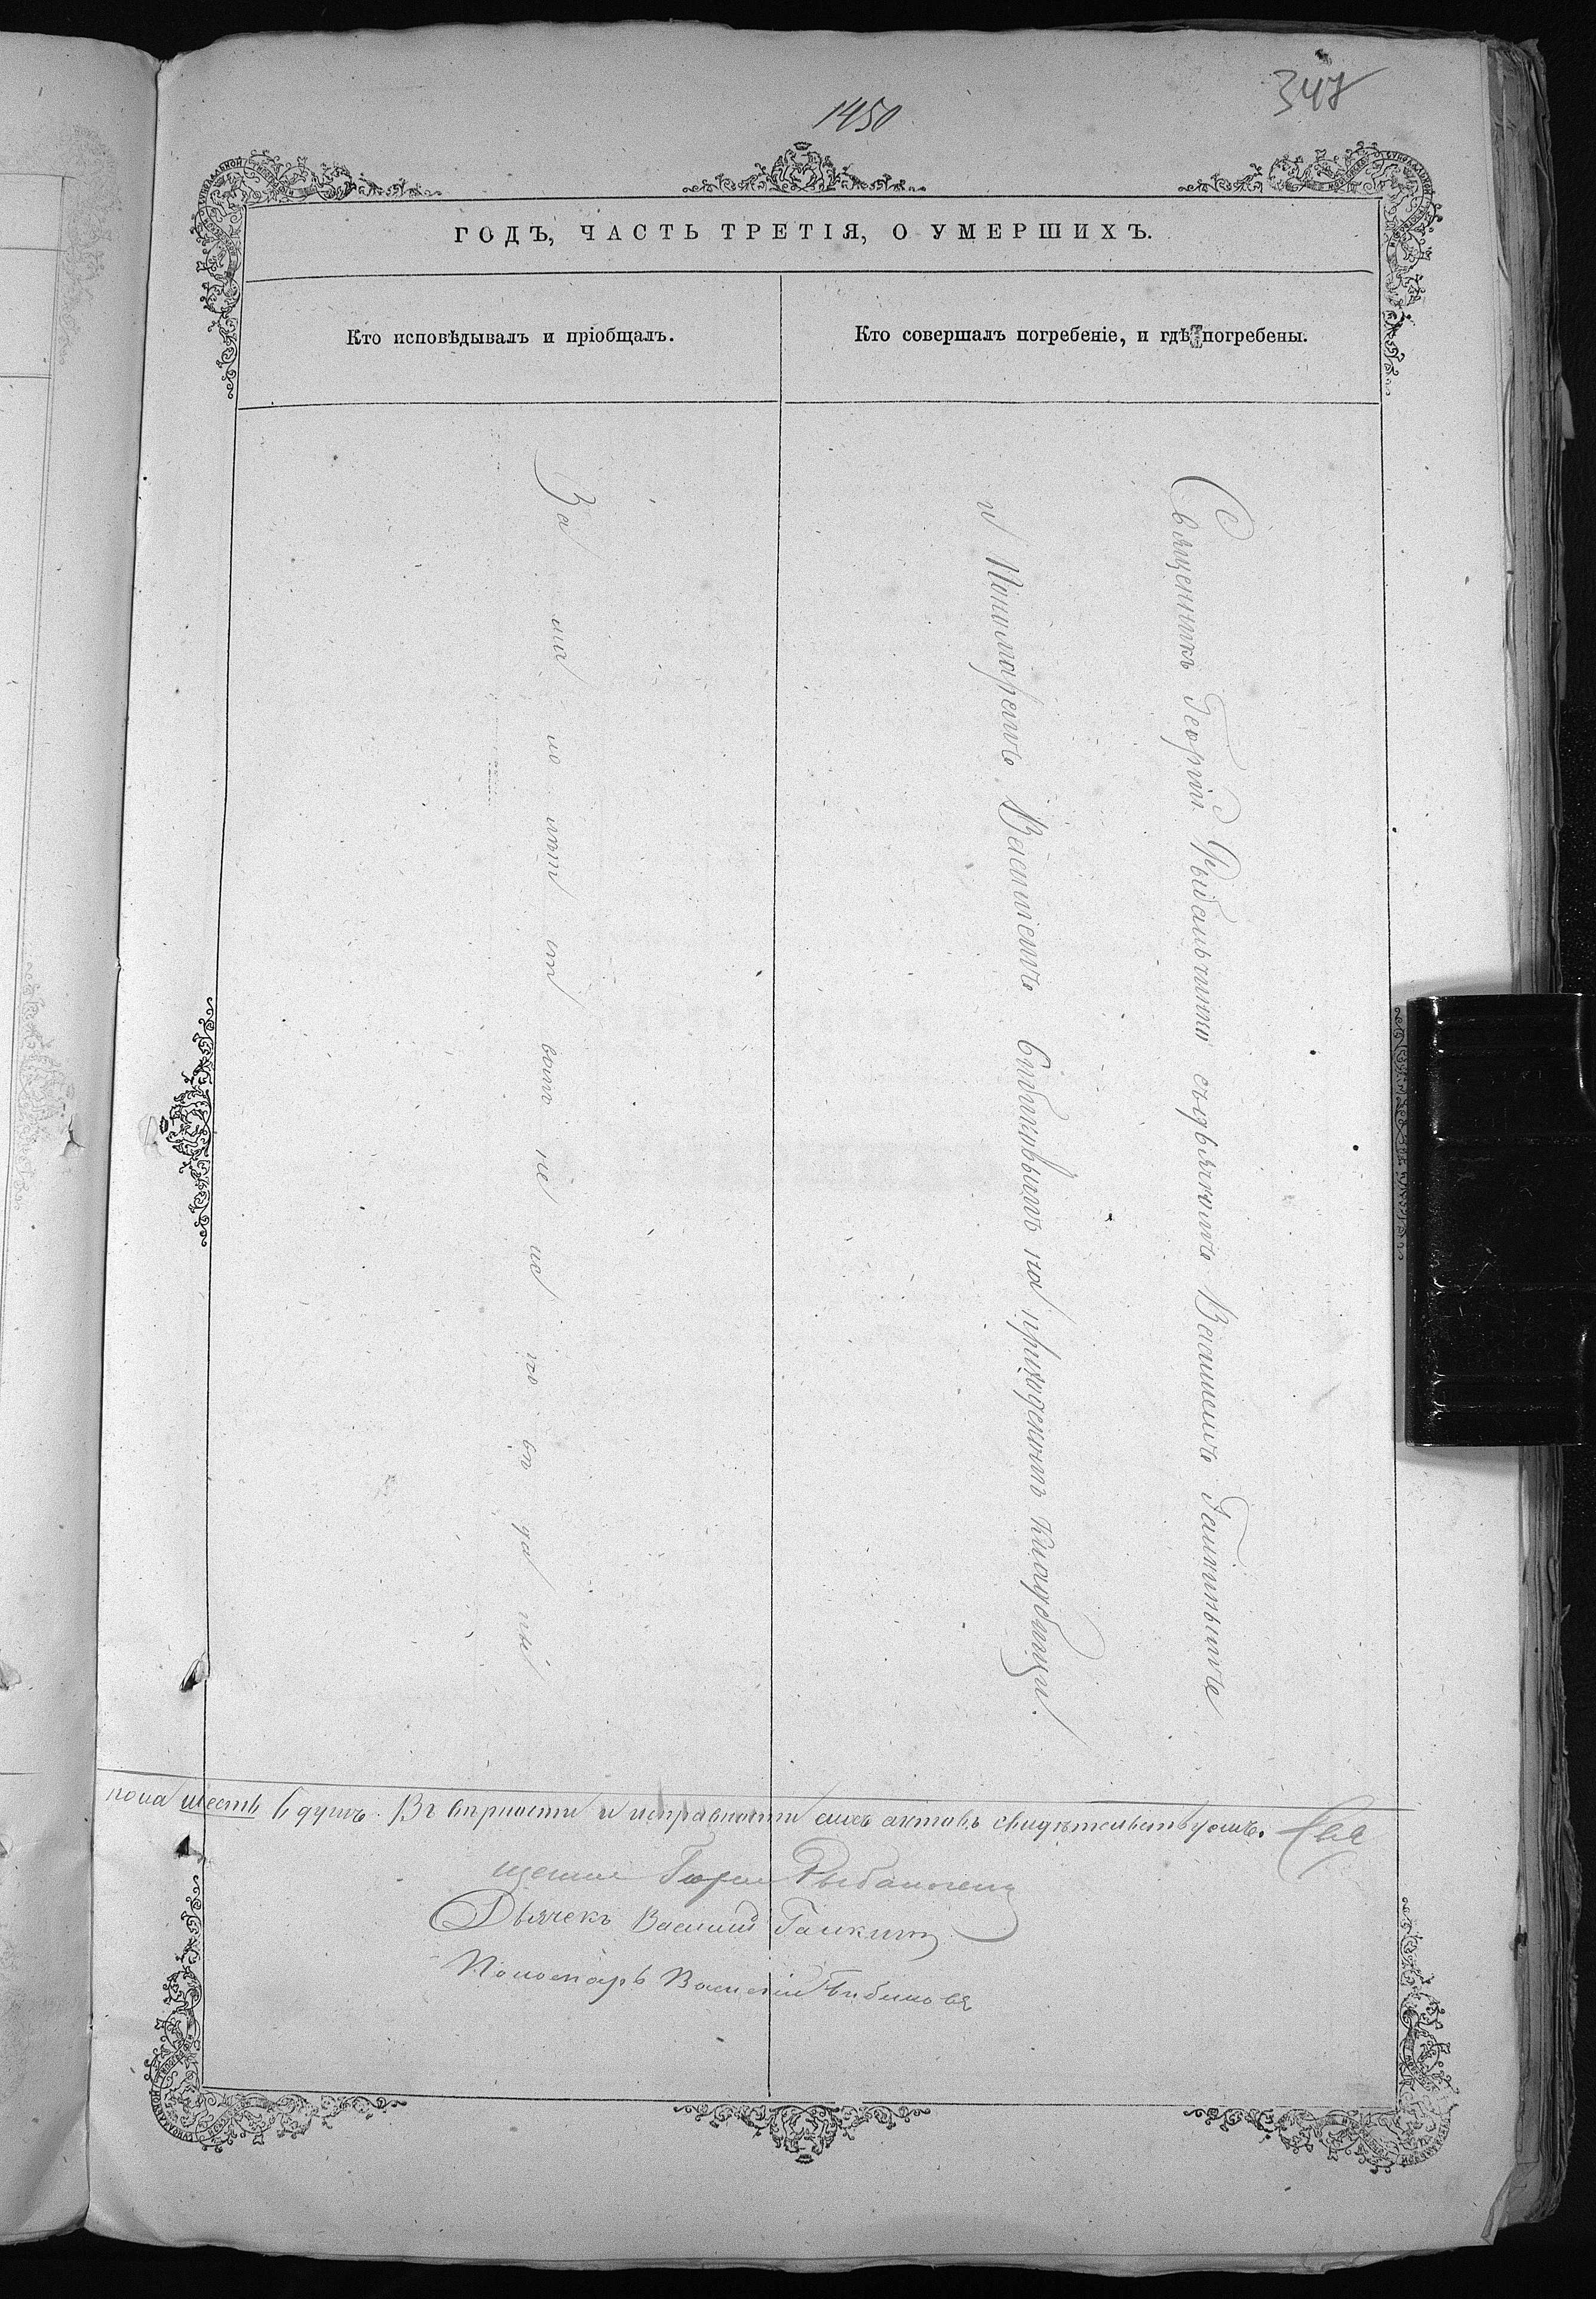 1450
347
ГОДЪ, ЧАСТЬ ТРЕТІЯ, О УМЕРШИХЪ.
Кто исповѣдывалъ и пріобщалъ.
Кто совершалъ погребеніе, и гдѣ погребены.
За ма ло лѣт ст вом не по да ны
Священникъ Георгій Рыбальчини съ дьячкомъ Василіемъ Галкинымъ
и Пономаремъ Василіемъ Бибиковымъ на приходскомъ кладбищѣ.
пола шесть 6 душъ. Въ вѣрности и исправности сихъ актовъ свидѣтельствуемъ. Свя
щенник Георгій
Дьячекъ Василій Галкинъ
Пономарь Василій Бибиковъ